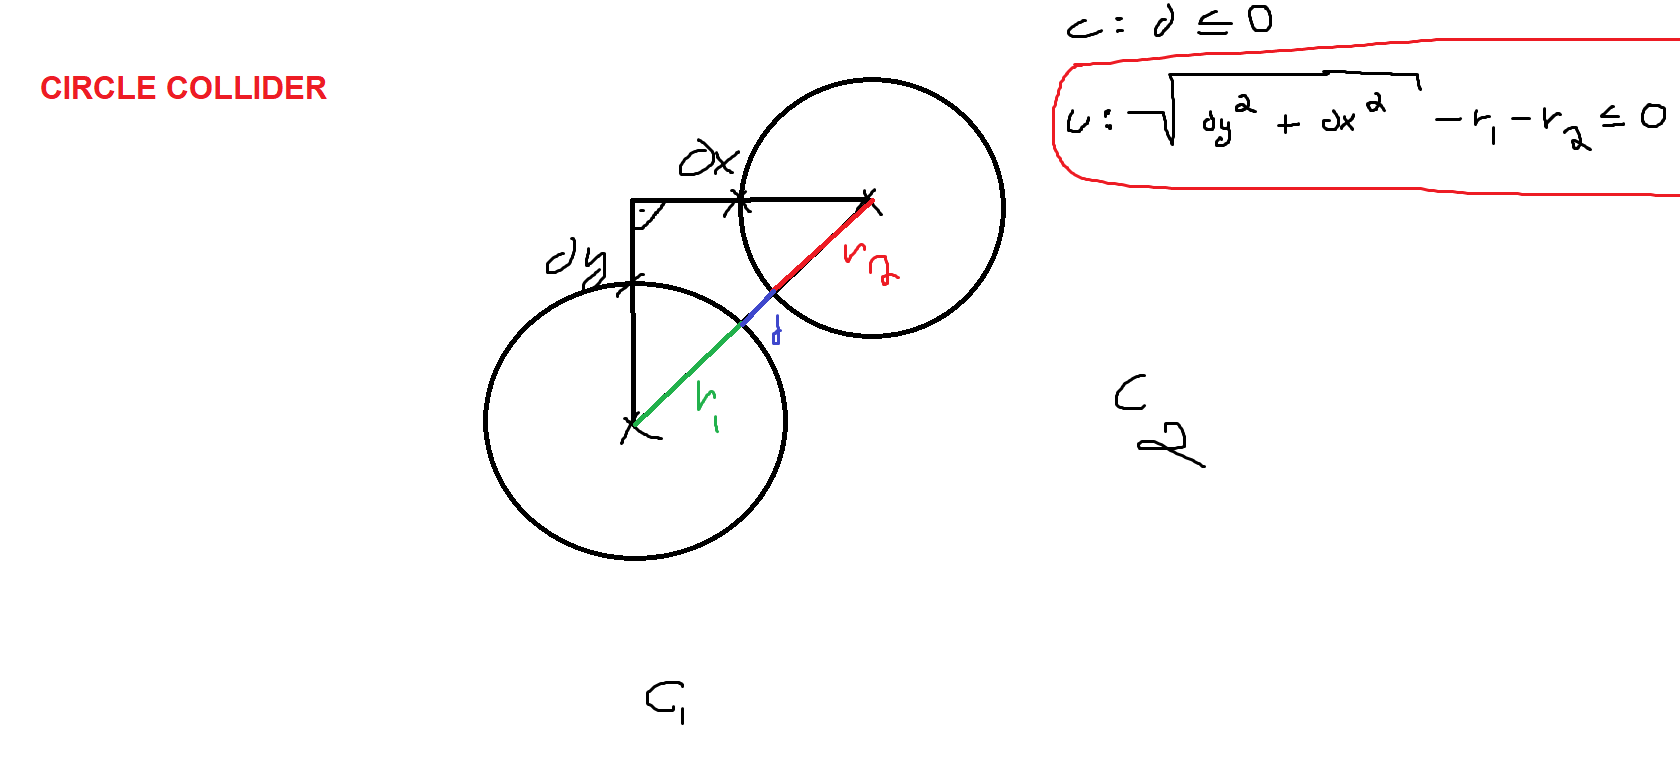 c: d ≤ 0
CIRCLE COLLIDER
c: √(dy² + dx²) - r₁ - r₂ ≤ 0
dx
dy
r₂
d
r₁
C₂
C₁